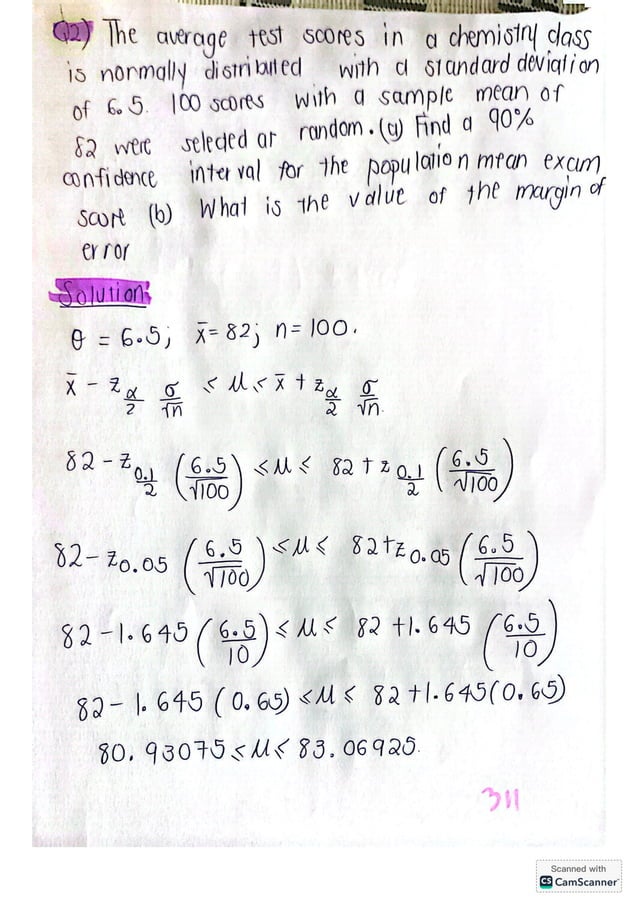 Q2) The average test scores in a chemistry class
is normally distributed with a standard deviation
of 6.5. 100 scores with a sample mean of
82 were selected at random. (a) Find a 90%
confidence interval for the population mean exam
score (b) What is the value of the margin of
error
Solution:
θ = 6.5; x̄ = 82; n = 100.
x̄ - z α/2 σ/√n < μ < x̄ + z α/2 σ/√n
82 - z 0.1/2 (6.5/√100) < μ < 82 + z 0.1/2 (6.5/√100)
82 - z0.05 (6.5/√100) < μ < 82 + z0.05 (6.5/√100)
82 - 1.645 (6.5/10) < μ < 82 + 1.645 (6.5/10)
82 - 1.645 (0.65) < μ < 82 + 1.645 (0.65)
80.93075 < μ < 83.06925.
311
Scanned with
CS CamScanner